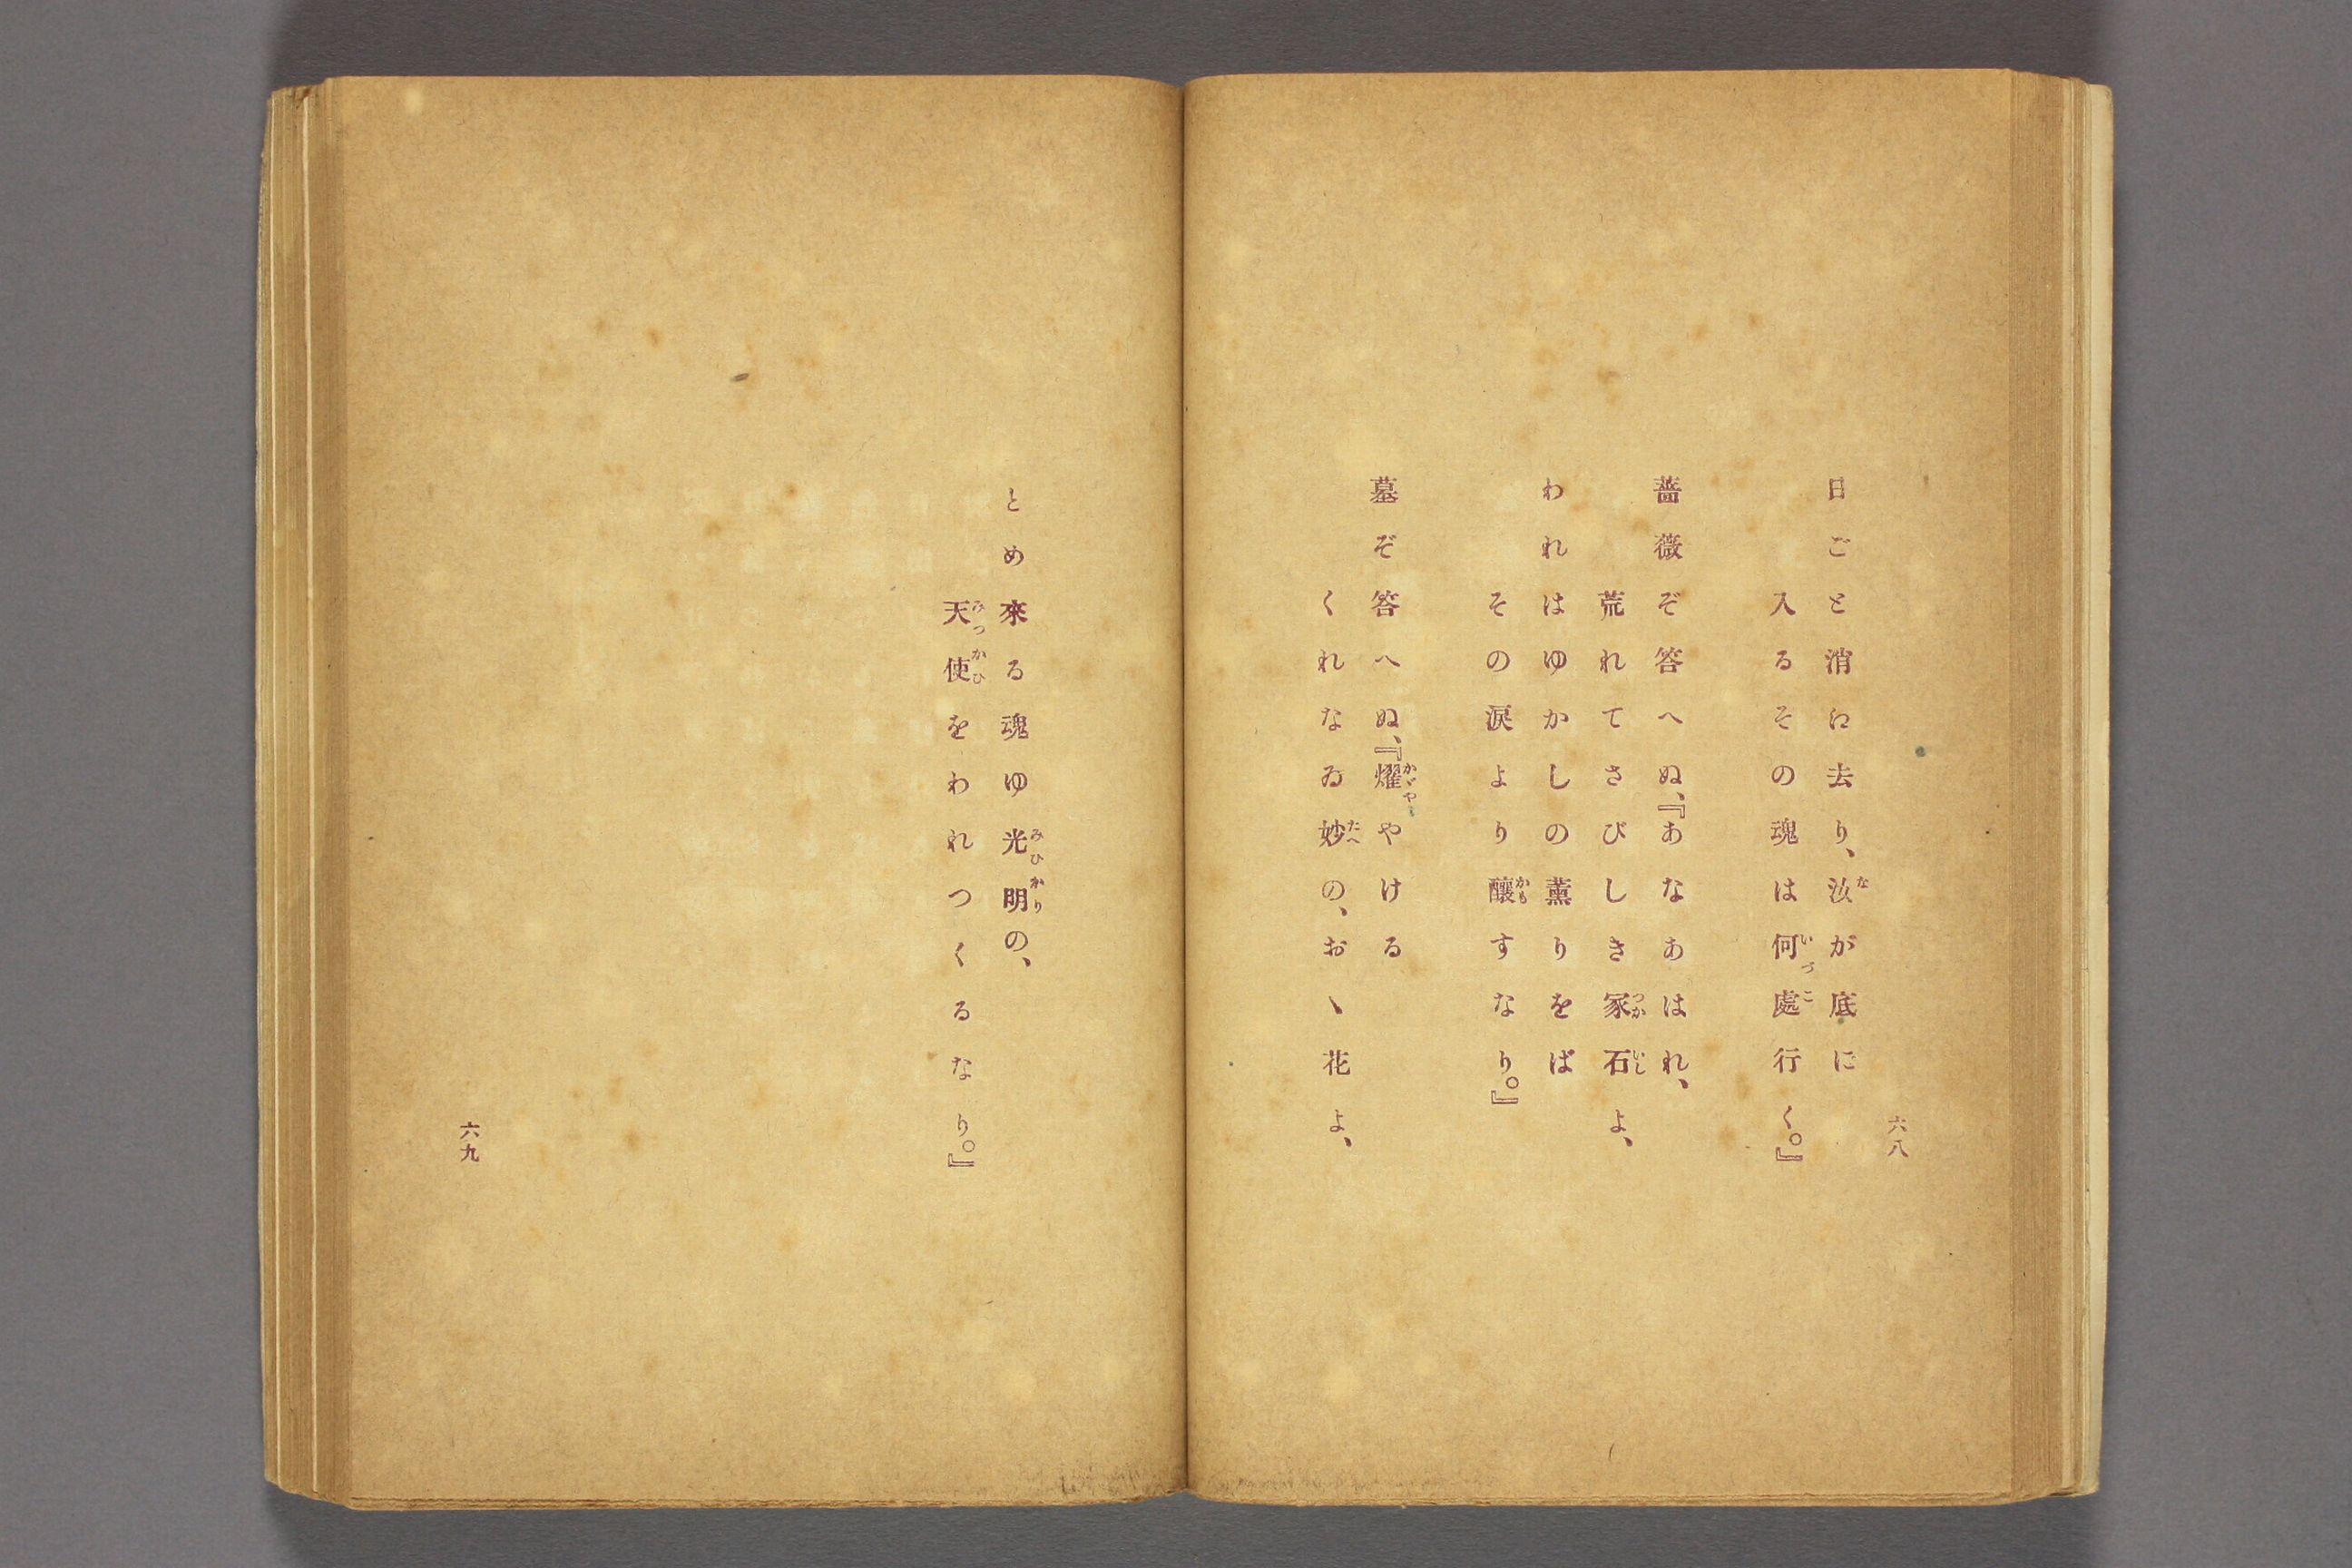 六八
日ごと消え去り、汝(な)が底に
入るその魂は何處(いづこ)行く。』
薔薇ぞ答へぬ、『あなあはれ、
荒れてさびしき冢石(つかいし)よ、
われはゆかしの薫りをば
その涙より釀(かも)すなり。』
墓ぞ答へぬ、『燿(かゞや)やける
くれなゐ妙(たへ)の、おゝ花よ、
とめ來る魂ゆ光明(みひかり)の、
天使(みつかひ)をわれつくるなり。』
六九